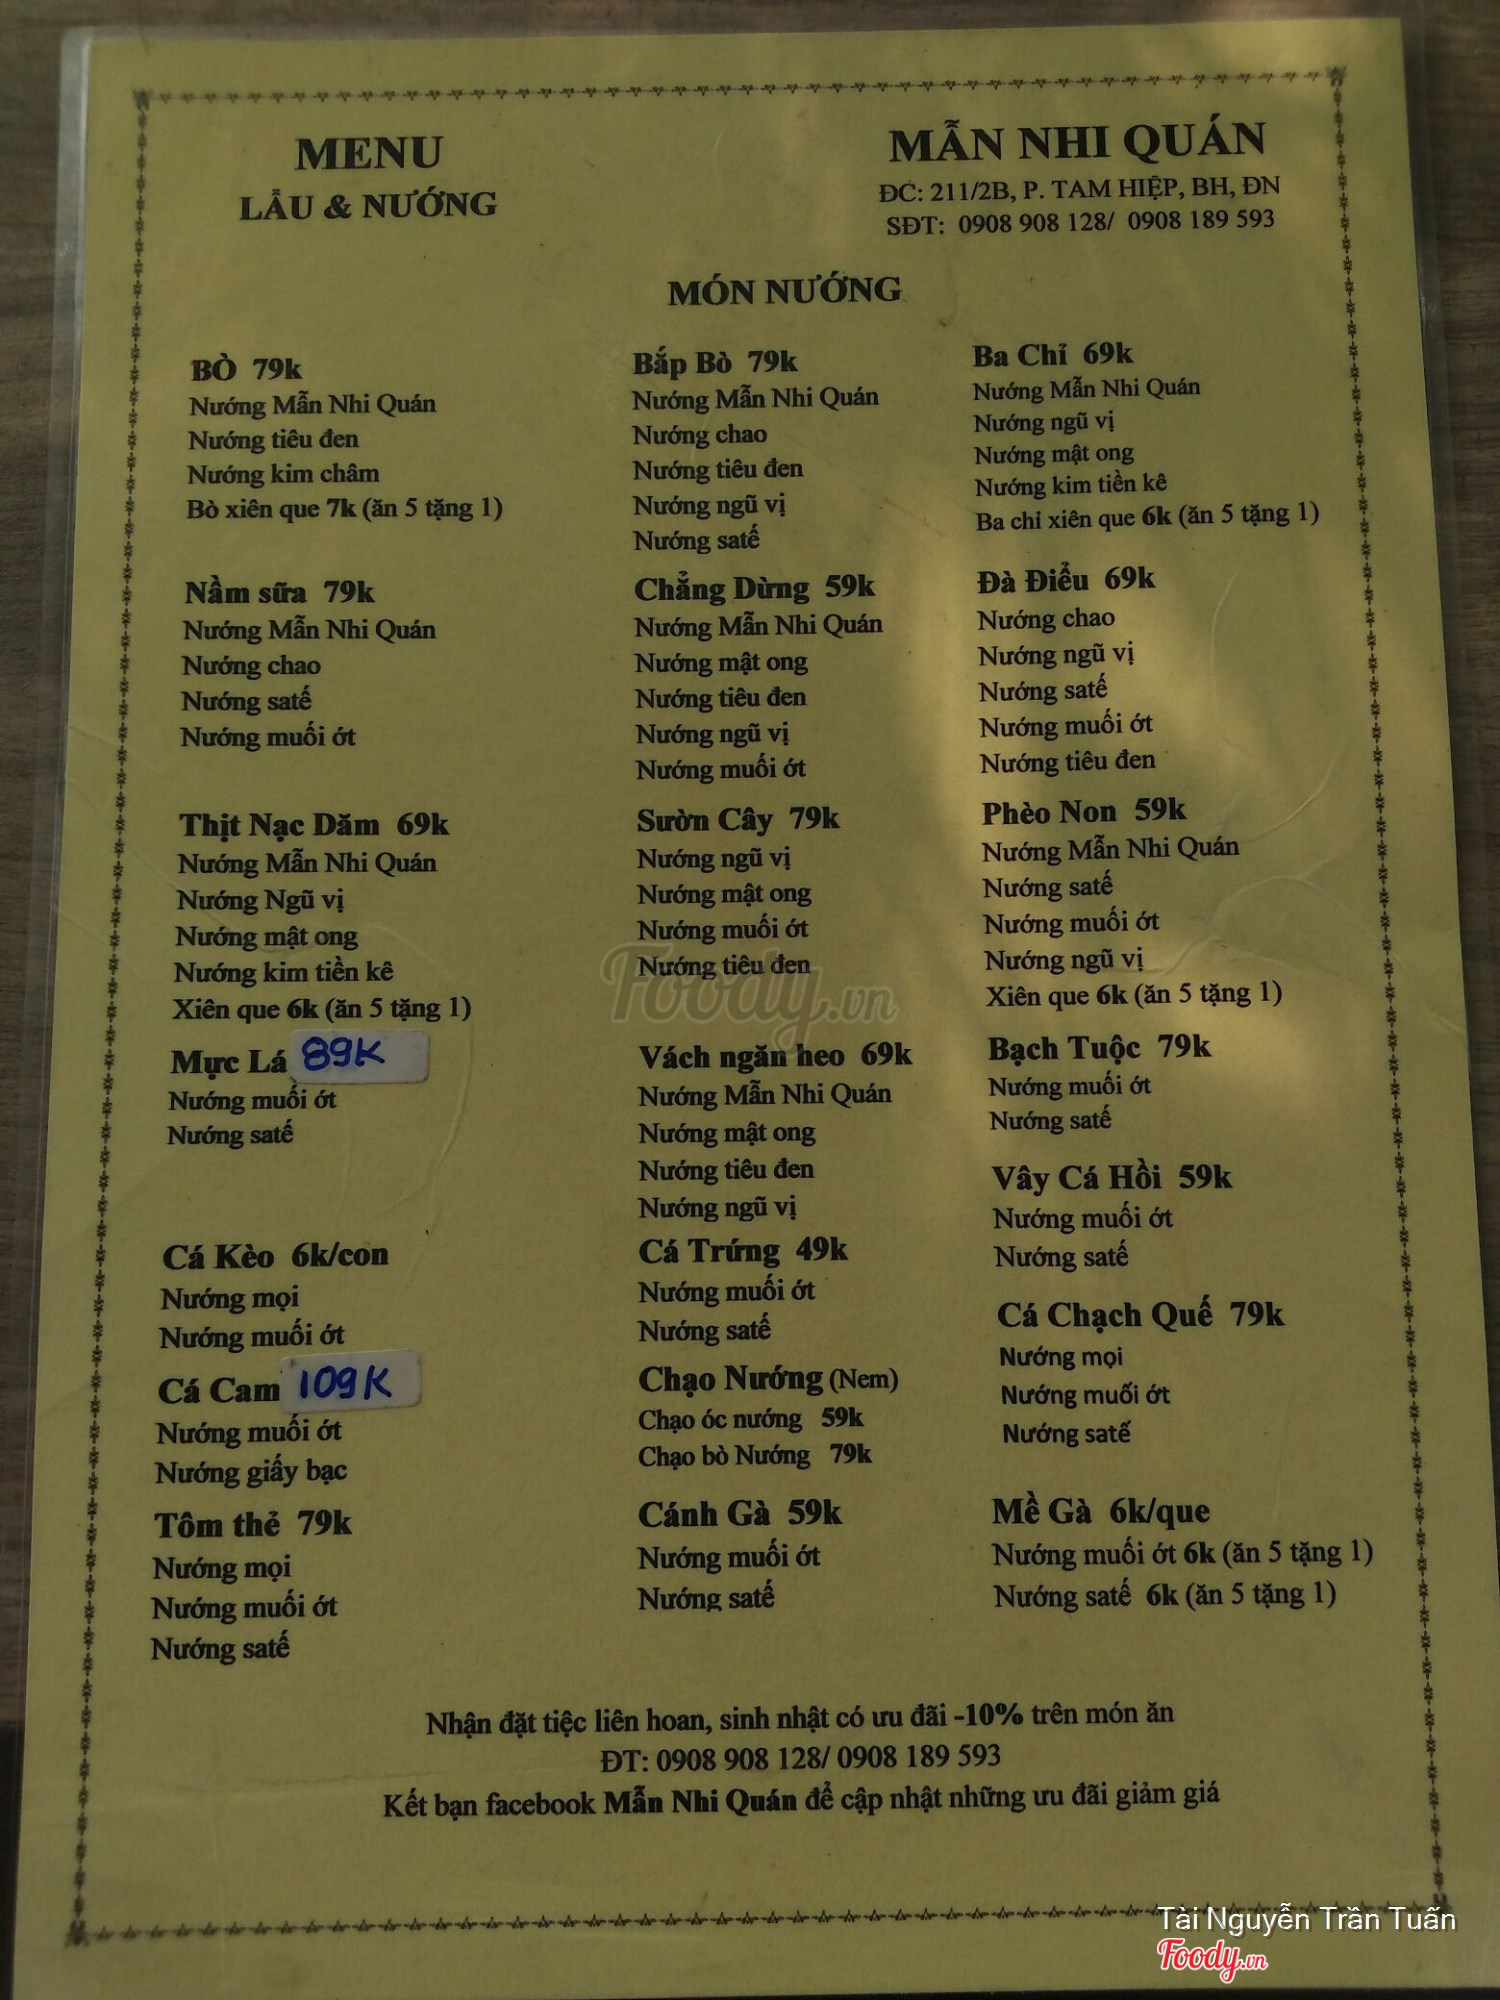 MENU
LẨU & NƯỚNG
MẪN NHI QUÁN
ĐC: 211/2B, P. TAM HIỆP, BH, ĐN
SĐT: 0908 908 128/ 0908 189 593
MÓN NƯỚNG
BÒ 79k
Nướng Mẫn Nhi Quán
Nướng tiêu đen
Nướng kim châm
Bò xiên que 7k (ăn 5 tặng 1)
Bắp Bò 79k
Nướng Mẫn Nhi Quán
Nướng chao
Nướng tiêu đen
Nướng ngũ vị
Nướng satế
Ba Chỉ 69k
Nướng Mẫn Nhi Quán
Nướng ngũ vị
Nướng mật ong
Nướng kim tiền kê
Ba chỉ xiên que 6k (ăn 5 tặng 1)
Nầm sữa 79k
Nướng Mẫn Nhi Quán
Nướng chao
Nướng satế
Nướng muối ớt
Chẳng Dừng 59k
Nướng Mẫn Nhi Quán
Nướng mật ong
Nướng tiêu đen
Nướng ngũ vị
Nướng muối ớt
Đà Điểu 69k
Nướng chao
Nướng ngũ vị
Nướng satế
Nướng muối ớt
Nướng tiêu đen
Thịt Nạc Dăm 69k
Nướng Mẫn Nhi Quán
Nướng Ngũ vị
Nướng mật ong
Nướng kim tiền kê
Xiên que 6k (ăn 5 tặng 1)
Sườn Cây 79k
Nướng ngũ vị
Nướng mật ong
Nướng muối ớt
Nướng tiêu đen
Phèo Non 59k
Nướng Mẫn Nhi Quán
Nướng satế
Nướng muối ớt
Nướng ngũ vị
Xiên que 6k (ăn 5 tặng 1)
Foody.vn
Mực Lá 89K
Nướng muối ớt
Nướng satế
Vách ngăn heo 69k
Nướng Mẫn Nhi Quán
Nướng mật ong
Nướng tiêu đen
Nướng ngũ vị
Bạch Tuộc 79k
Nướng muối ớt
Nướng satế
Vây Cá Hồi 59k
Nướng muối ớt
Nướng satế
Cá Kèo 6k/con
Nướng mọi
Nướng muối ớt
Cá Trứng 49k
Nướng muối ớt
Nướng satế
Cá Chạch Quế 79k
Nướng mọi
Nướng muối ớt
Nướng satế
Cá Cam 109K
Nướng muối ớt
Nướng giấy bạc
Chạo Nướng (Nem)
Chạo óc nướng 59k
Chạo bò Nướng 79k
Tôm thẻ 79k
Nướng mọi
Nướng muối ớt
Nướng satế
Cánh Gà 59k
Nướng muối ớt
Nướng satế
Mề Gà 6k/que
Nướng muối ớt 6k (ăn 5 tặng 1)
Nướng satế 6k (ăn 5 tặng 1)
Nhận đặt tiệc liên hoan, sinh nhật có ưu đãi -10% trên món ăn
ĐT: 0908 908 128/ 0908 189 593
Kết bạn facebook Mẫn Nhi Quán để cập nhật những ưu đãi giảm giá
Tài Nguyễn Trần Tuấn
Foody.vn